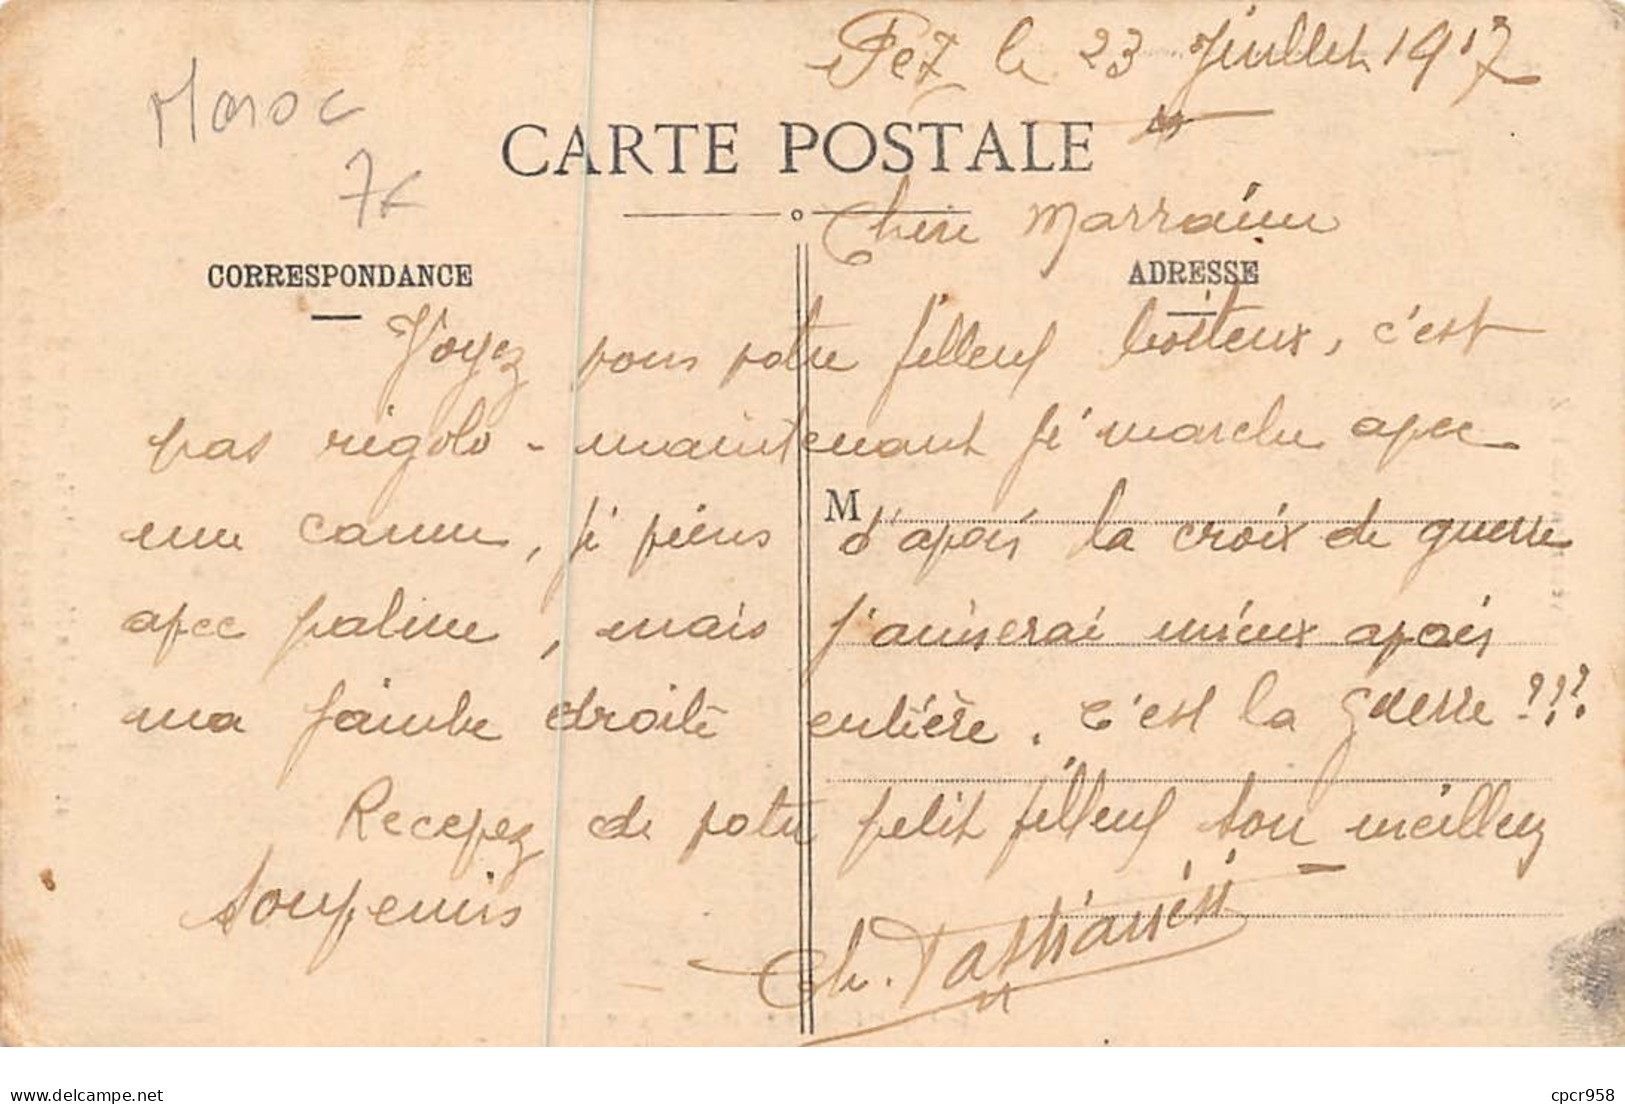 Maroc
7€
Fez le 23 Juillet 1917
CARTE POSTALE
Chère Marraine
CORRESPONDANCE
ADRESSE
Voyez vous votre filleul boiteux, c'est
pas rigolo - maintenant je marche avec
une canne, je viens d'avoir la croix de guerre
M
avec palme, mais j'aimerai mieux avoir
ma jambe droite entière. C'est la guerre !??
Recevez de votre petit filleul son meilleur
souvenirs
Ch.
delcampe.net
cpcr958